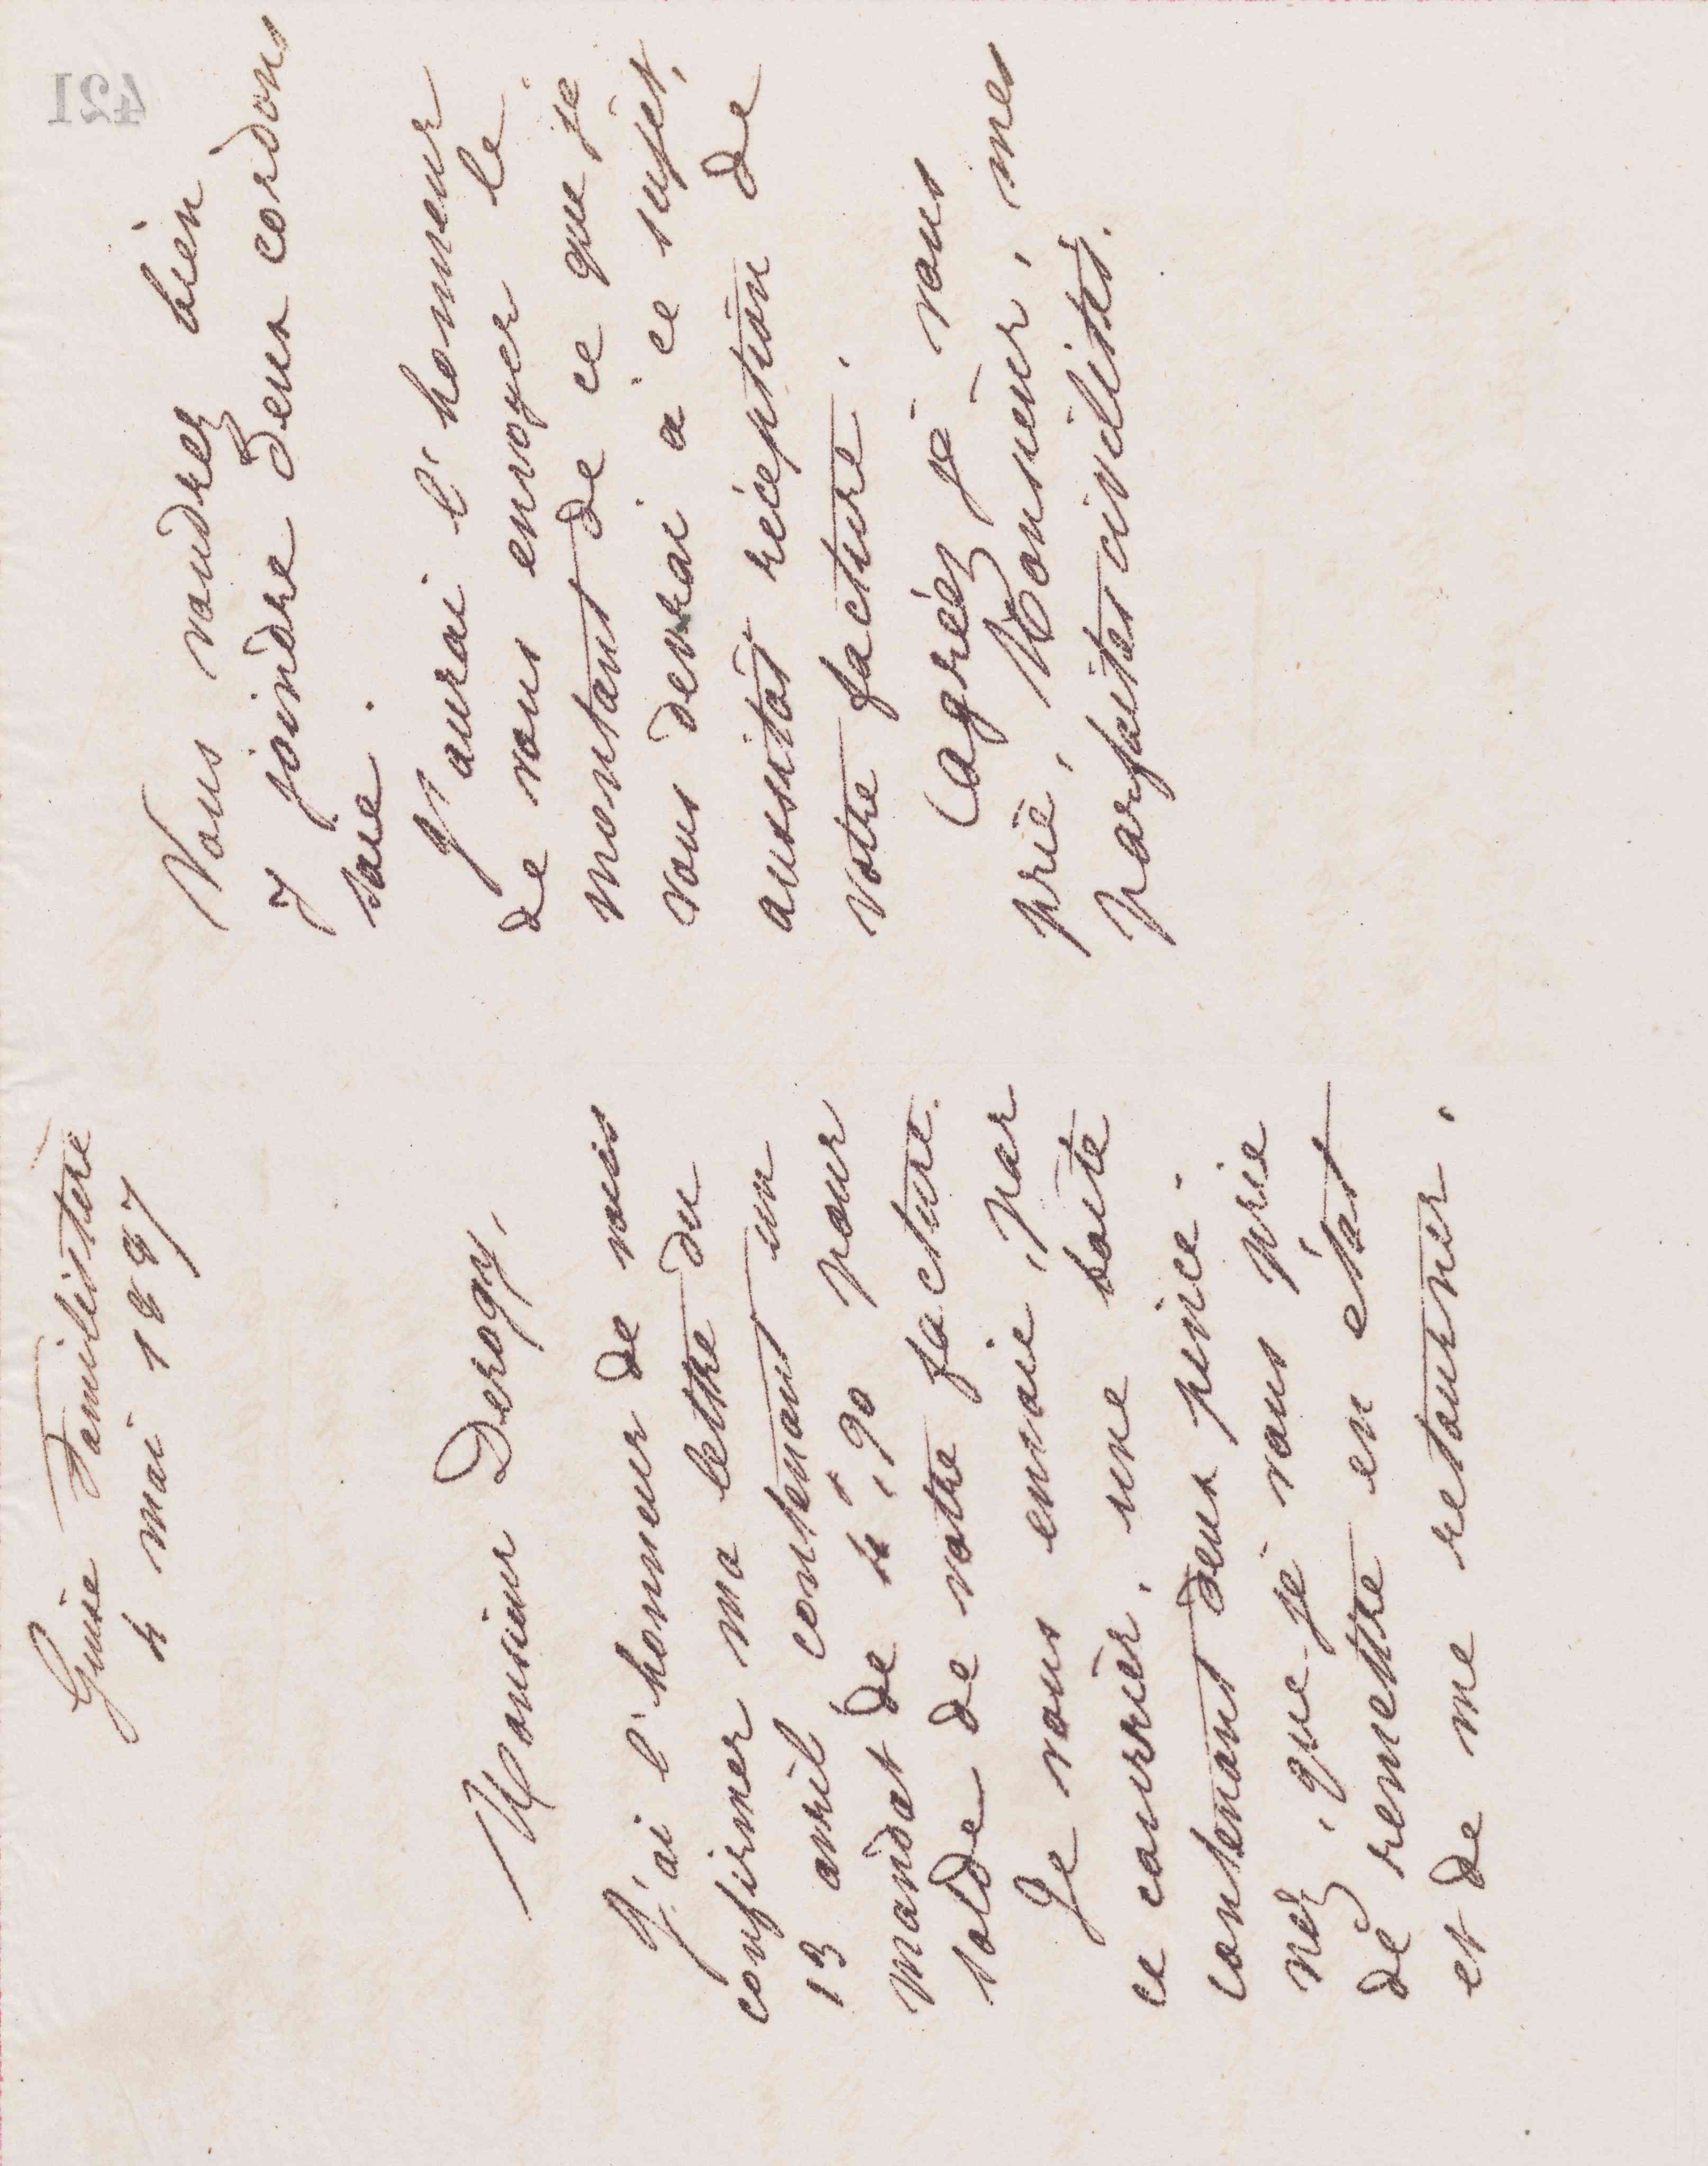 Guise Familistère
4 mai 1897
Monsieur Derogy,
J'ai l'honneur de vous
confirmer ma lettre du
13 avril contenant un
mandat de 4f,90 pour
solde de votre facture.
Je vous envoie, par
ce courrier, une boîte
contenant deux pince-
nez, que je vous prie
de remettre en état
et de me retourner.
Vous voudrez bien
y joindre deux cordons
soie.
J'aurai l'honneur
de vous envoyer le
montant de ce que je
vous devrai à ce sujet,
aussitôt réception de
votre facture.
Agréez je vous
prie, Monsieur, mes
parfaites civilités.
421